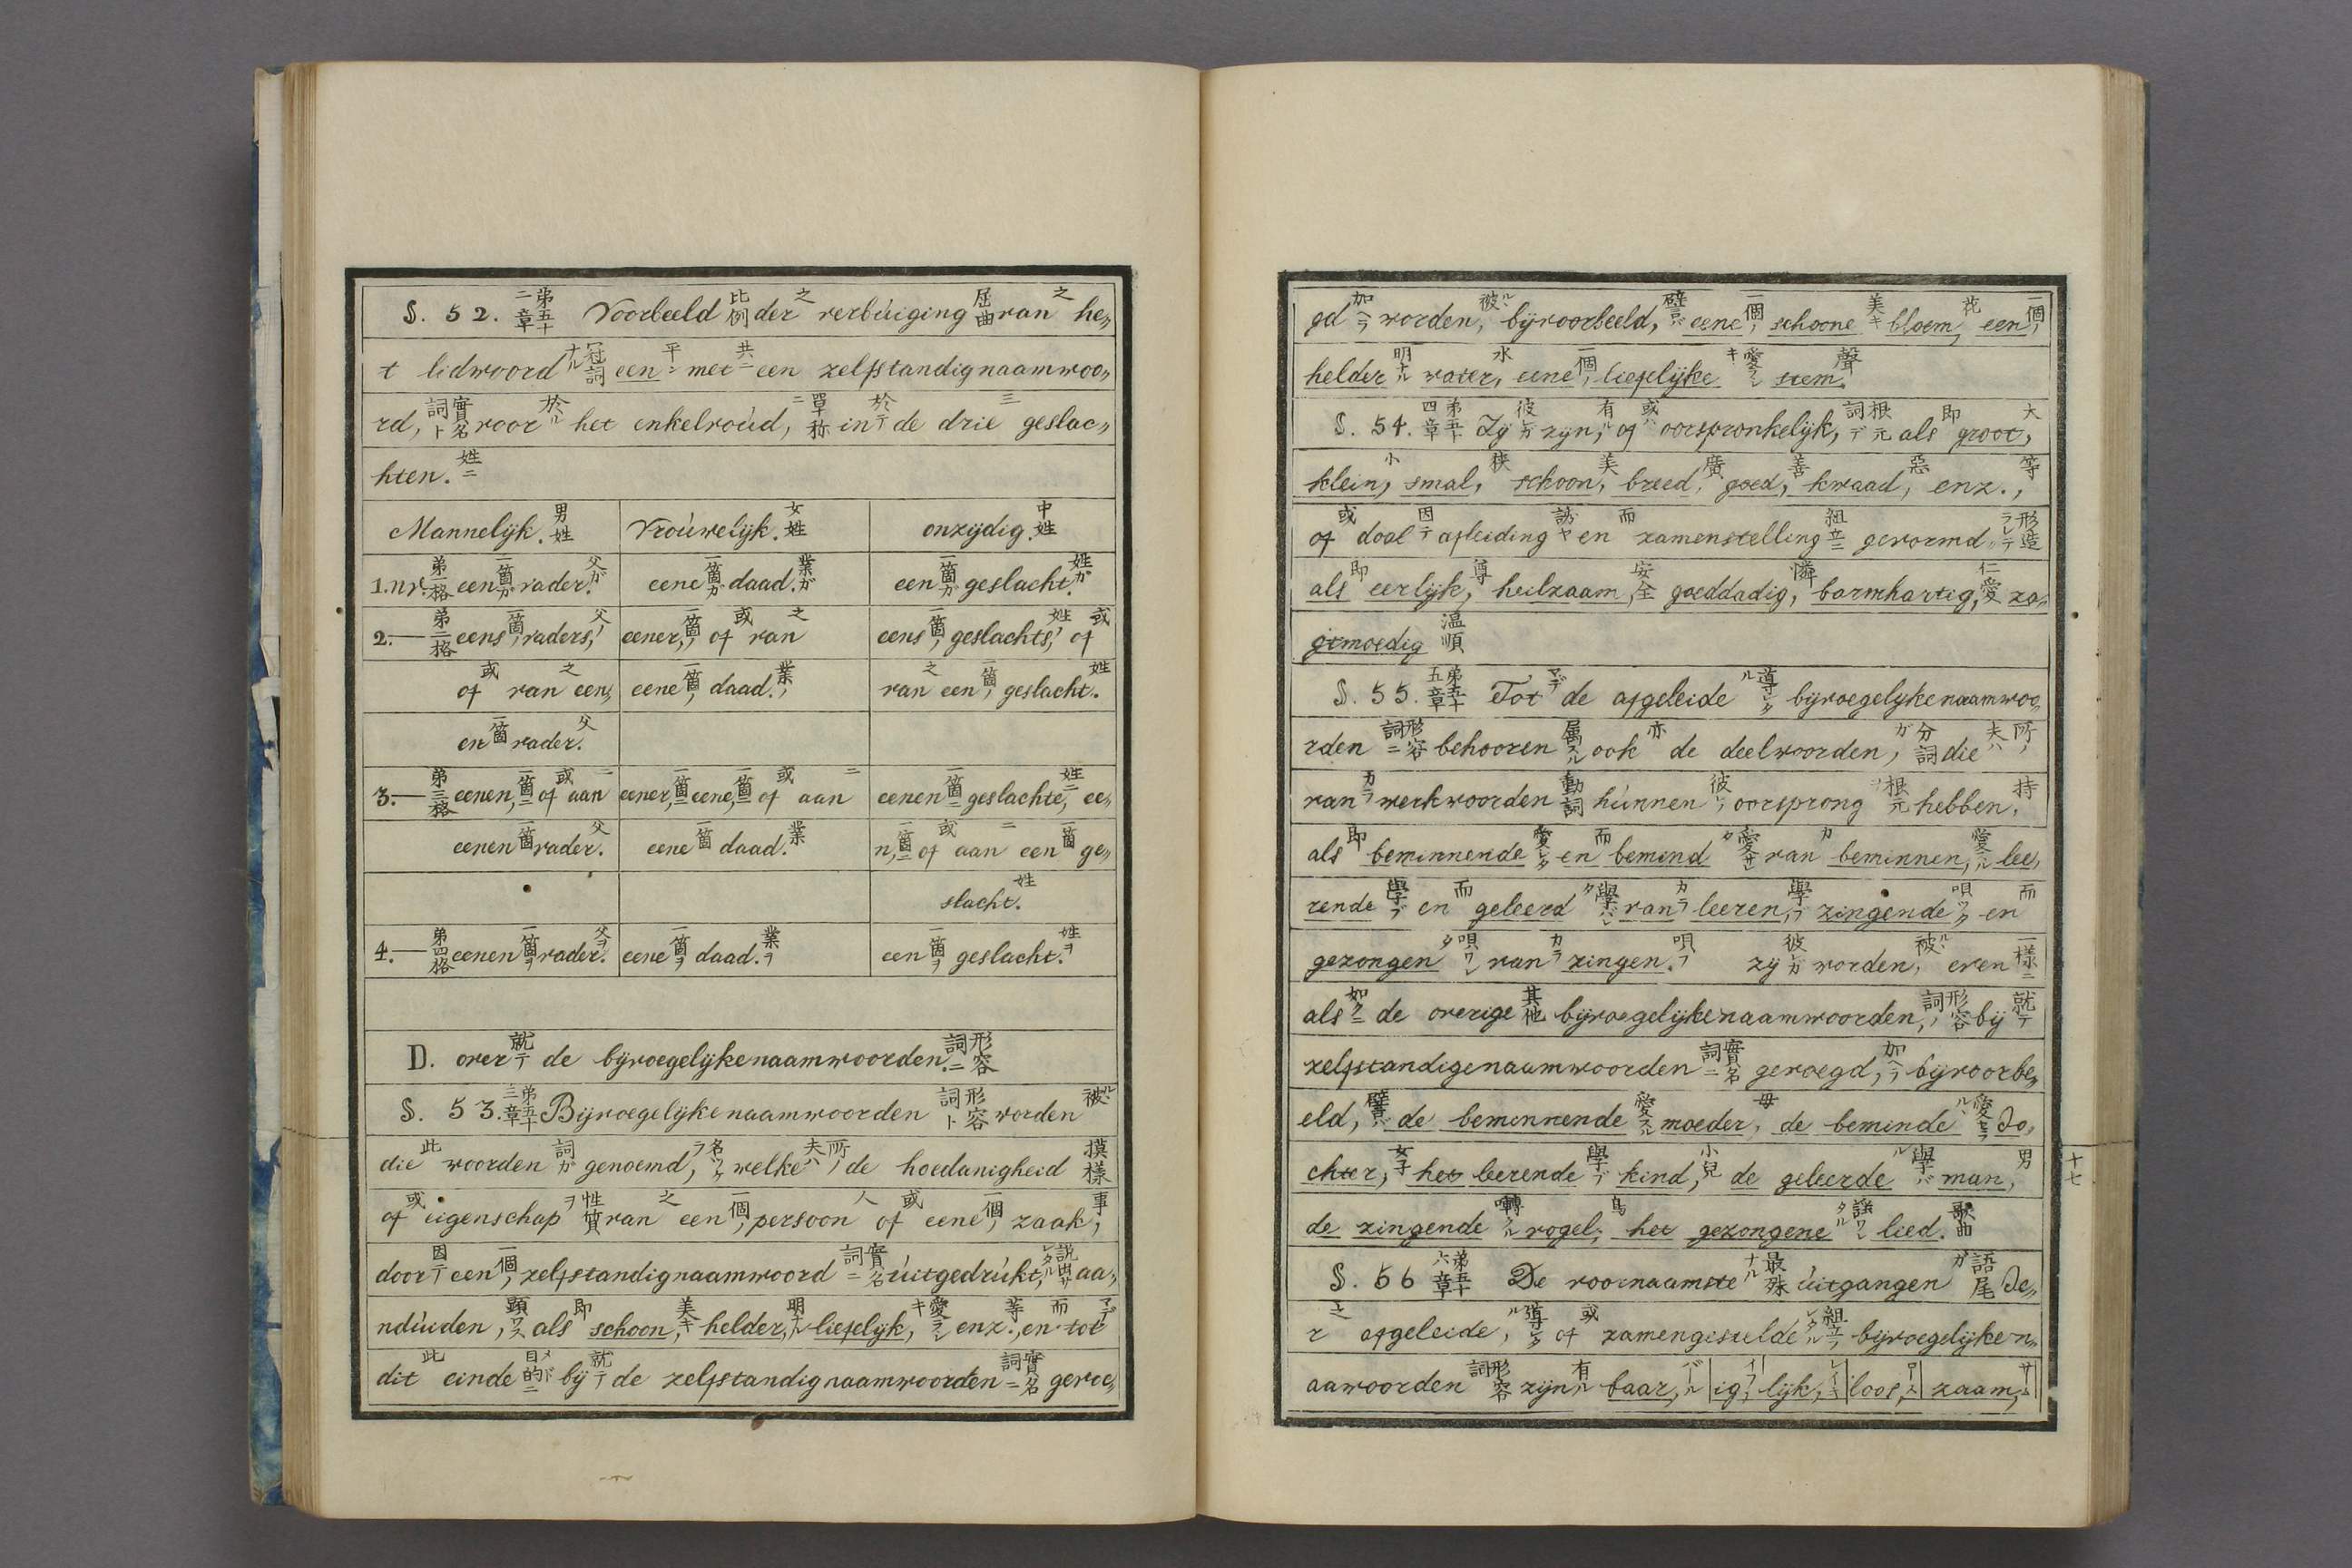 §. 52. 第五十二章 Voorbeeld 比例 der 之 verbúiging 屈曲 van 之 he„
t lidwoord 冠詞ナル een 平ニ met 共ニ een zelfstandignaamwoo„
rd, 實名詞ト voor 於ル het enkelvoúd, 單称ニ in 於テ de drie 三 geslac„
hten. 姓ニ
Mannelijk. 男姓 Vroúwelijk. 女姓 onzijdig. 中姓
1. nv. 第一格 een 一箇ガ vader. 父ガ eene 一箇ガ daad. 業ガ een 一箇ガ geslacht. 姓ガ
2. — 第二格 eens 一箇ノ vaders, 父ノ eener, 一箇ノ of 或 van 之 eens 一箇ノ geslachts, 姓ノ of 或
of 或 van 之 een„ eene 一箇ノ daad. 業ノ van 之 een 一箇ノ geslacht. 姓
en 一箇 vader. 父
3. — 第三格 eenen, 一箇ニ of 或 aan ニ eener, 一箇ニ eene, 一箇ニ of 或 aan ニ eenen 一箇ニ geslachte, 姓ニ ee„
eenen 一箇 vader. 父 eene 一箇 daad. 業 n, 一箇ニ of 或 aan ニ een 一箇 ge„
slacht. 姓
4. — 第四格 eenen 一箇ヲ vader. 父ヲ eene 一箇ヲ daad. 業ヲ een 一箇ヲ geslacht. 姓ヲ
D. over 就テ de bijvoegelijkenaamwoorden. 形容詞ニ
§. 53. 第五十三章 Bijvoegelijkenaamwoorden 形容詞ト worden 被ル
die 此 woorden 詞ガ genoemd, 名ツケラ welke 所ノ夫ハ de hoedanigheid 摸樣
of 或 eigenschap 性質ヲ van 之 een 一個ノ persoon 人 of 或 eene 一個ノ zaak, 事
door 因テ een 一個ノ zelfstandignaamwoord 實名詞ニ úitgedrúkt, 説出サレタル aa„
ndúiden, 顕ワス als 即 schoon, 美キ helder, 明ナル liefelijk, 愛ラシキ enz., 等 en 而 tot マデ
dit 此 einde 目的ニ bij 就テ de zelfstandignaamwoorden 實名詞ニ gevoe„
gd 加ヘラ worden, 被ル bijvoorbeeld, 譬バ eene 一個ノ schoone 美キ bloem, 花 een 一個ノ
helder 明ナル water, 水 eene 一個ノ liefelijke 愛ラシキ stem. 聲
§. 54. 第五十四章 Zij 彼レガ zijn, 有ル of 或ハ oorspronkelijk, 根元詞デ als 即 groot, 大
klein, 小 smal, 狭 schoon, 美 breed, 廣 goed, 善 kwaad, 惡 enz., 等
of 或 dool 因テ afleiding en 而 zamenstelling 組立ニ gevormd 形造ラレテ
als 即 eerlijk, 尊 heilzaam, 安全 goeddadig, 憐 barmhartig, 仁愛 za„
gtmoedig 温順
§. 55. 第五十五章 Tot マデ de afgeleide 導レタル bijvoegelijkenaamwoo„
rden 形容詞ニ behooren 属スル ook 亦 de deelwoorden, 分詞ガ die 所ノ夫ハ
van カラ werkwoorden 動詞 húnnen 彼レノ oorsprong 根元ヲ hebben. 持
als 即 beminnende 愛シタ en 而 bemind 愛サレタ van カラ beminnen, 愛スル lee„
rende 學ブ en 而 geleerd 學バレタ van カラ leeren, 學ブ zingende 唄ワク en 而
gezongen 唄ワレタ van カラ zingen. 唄フ zij 彼レガ worden, 被ル even 一樣ニ
als 如クニ de overige 其他 bijvoegelijkenaamwoorden, 形容詞ノ bij 就テ
zelfstandigenaamwoorden 實名詞ニ gevoegd, 加ヘラ bijvoorbe„
eld, 譬バ de beminnende 愛スル moeder, 母 de beminde 愛セラルル do„
chter, 女子 het leerende 學ブ kind, 小兒 de geleerde 學バル man, 男
de zingende 囀スル vogel; 鳥 het gezongene 謡ワレタル lied. 歌曲
§. 56 第五十六章 De voornaamste 最殊ナル úitgangen 語尾ガ de„
r 之 afgeleide, 導レタル of 或 zamengestelde 組立ラレタル bijvoegelijken„
aawoorden 形容詞 zijn 有ル baar, バール ig, イフ lijk, レイキ loos, ロース zaam, サーム
十七